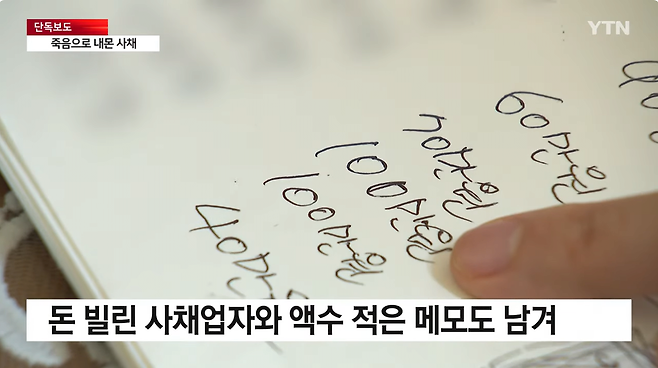 단독보도
죽음으로 내몬 사채
YTN
60만원
70만원
100만원
100만원
40만
돈 빌린 사채업자와 액수 적은 메모도 남겨